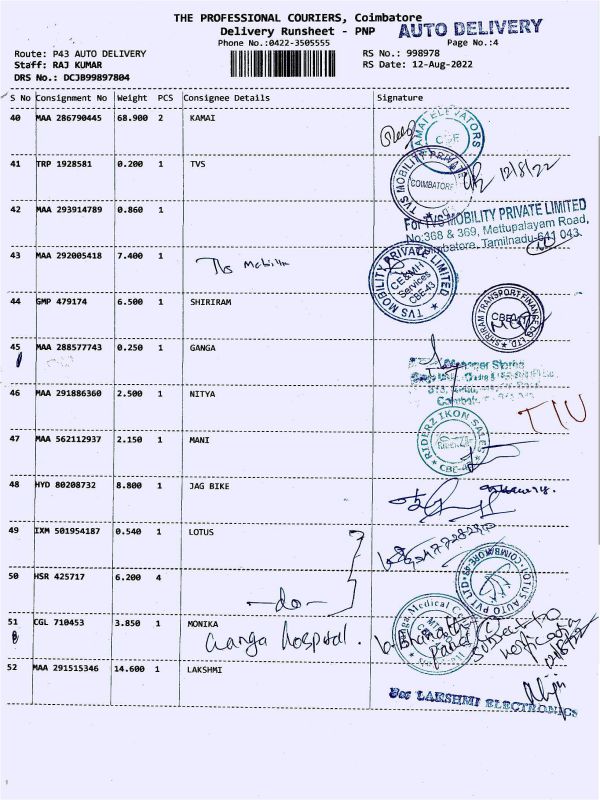 THE PROFESSIONAL COURIERS, Coimbatore
Delivery Runsheet - PNP
AUTO DELIVERY
Phone No.:0422-3505555
Page No.:4
Route: P43 AUTO DELIVERY
RS No.: 998978
Staff: RAJ KUMAR
RS Date: 12-Aug-2022
DRS No.: DCJB99897804
S No Consignment No Weight PCS Consignee Details Signature
40 MAA 286790445 68.900 2 KAMAI
ELEVATORS
CBE
41 TRP 1928581 0.200 1 TVS
TVS MOBILITY PRIVATE
COIMBATORE
12/8/22
42 MAA 293914789 0.860 1
For TVS MOBILITY PRIVATE LIMITED
No:368 & 369, Mettupalayam Road,
Coimbatore, Tamilnadu-641 043.
43 MAA 292005418 7.400 1
TVS Mobility
TVS MOBILITY PRIVATE LIMITED
CE&MH
Services
CBE-43
44 GMP 479174 6.500 1 SHRIRAM
SHRIRAM TRANSPORT FINANCE CO LTD
45 MAA 288577743 0.250 1 GANGA
Manager Stores
46 MAA 291886360 2.500 1 NITYA
47 MAA 562112937 2.150 1 MANI
RIDERZ IKON SALES
CBE-4
48 HYD 80208732 8.800 1 JAG BIKE
49 IXM 501954187 0.540 1 LOTUS
50 HSR 425717 6.200 4
-do-
LOTUS AUTO PVT LTD
COIMBATORE
51 CGL 710453 3.850 1 MONIKA
Ganga hospital.
Ganga Medical
Subject to
verification
52 MAA 291515346 14.600 1 LAKSHMI
LAKSHMI ELECTRONICS